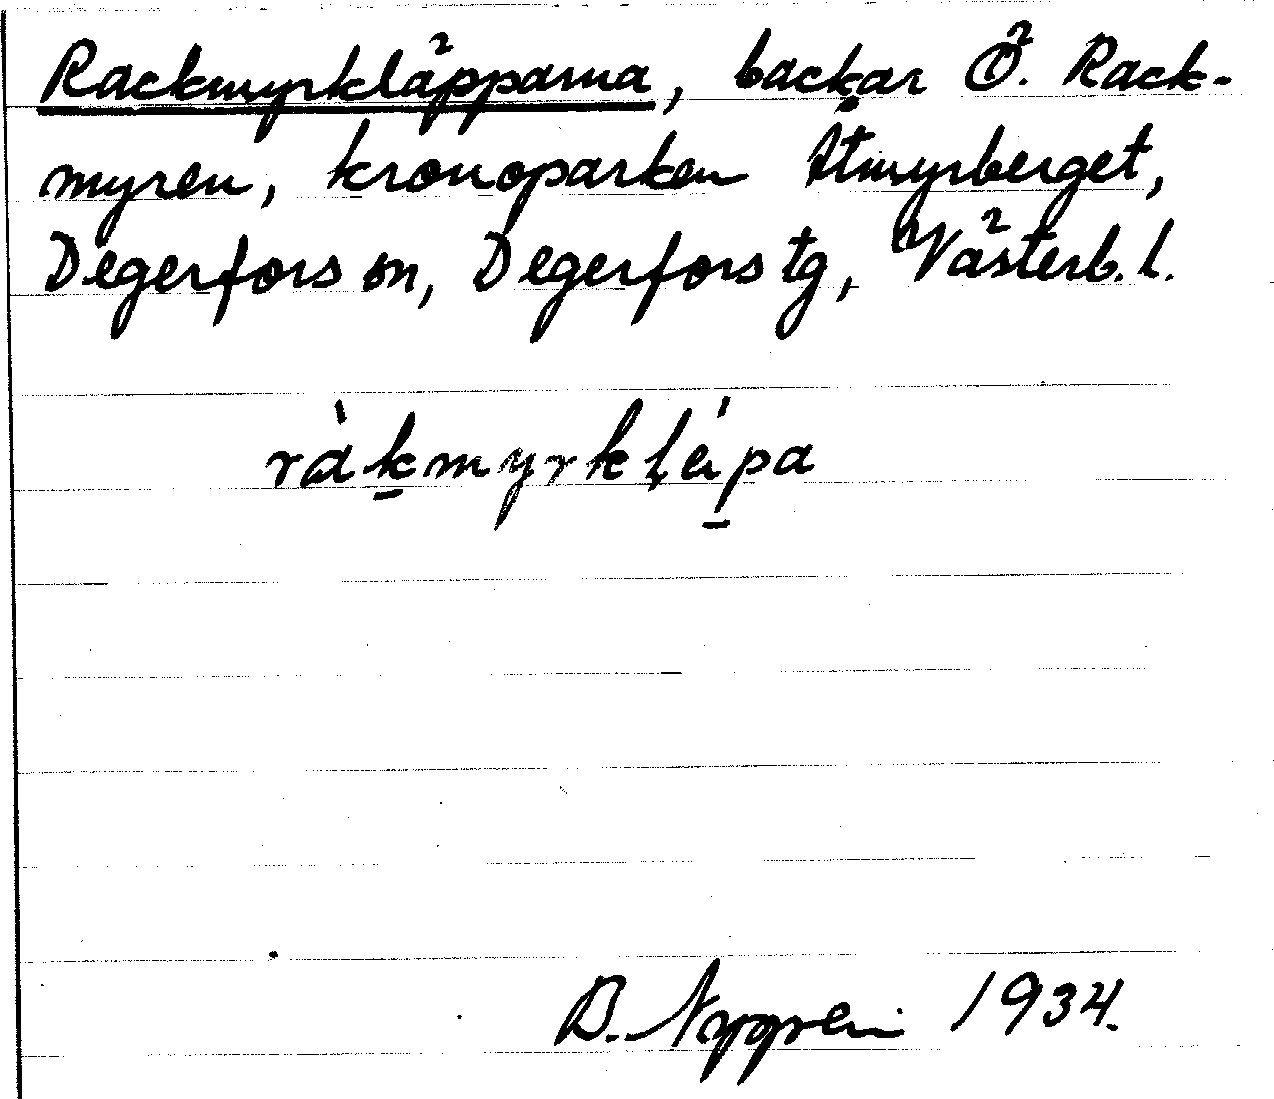 Rackmyrkläpparna, backar Ö. Rack-
myren, kronoparken Åtmyrberget,
Degerfors sn, Degerfors tg, Västerb. l.
ràkmyrkḷápa
B. Nygren 1934.